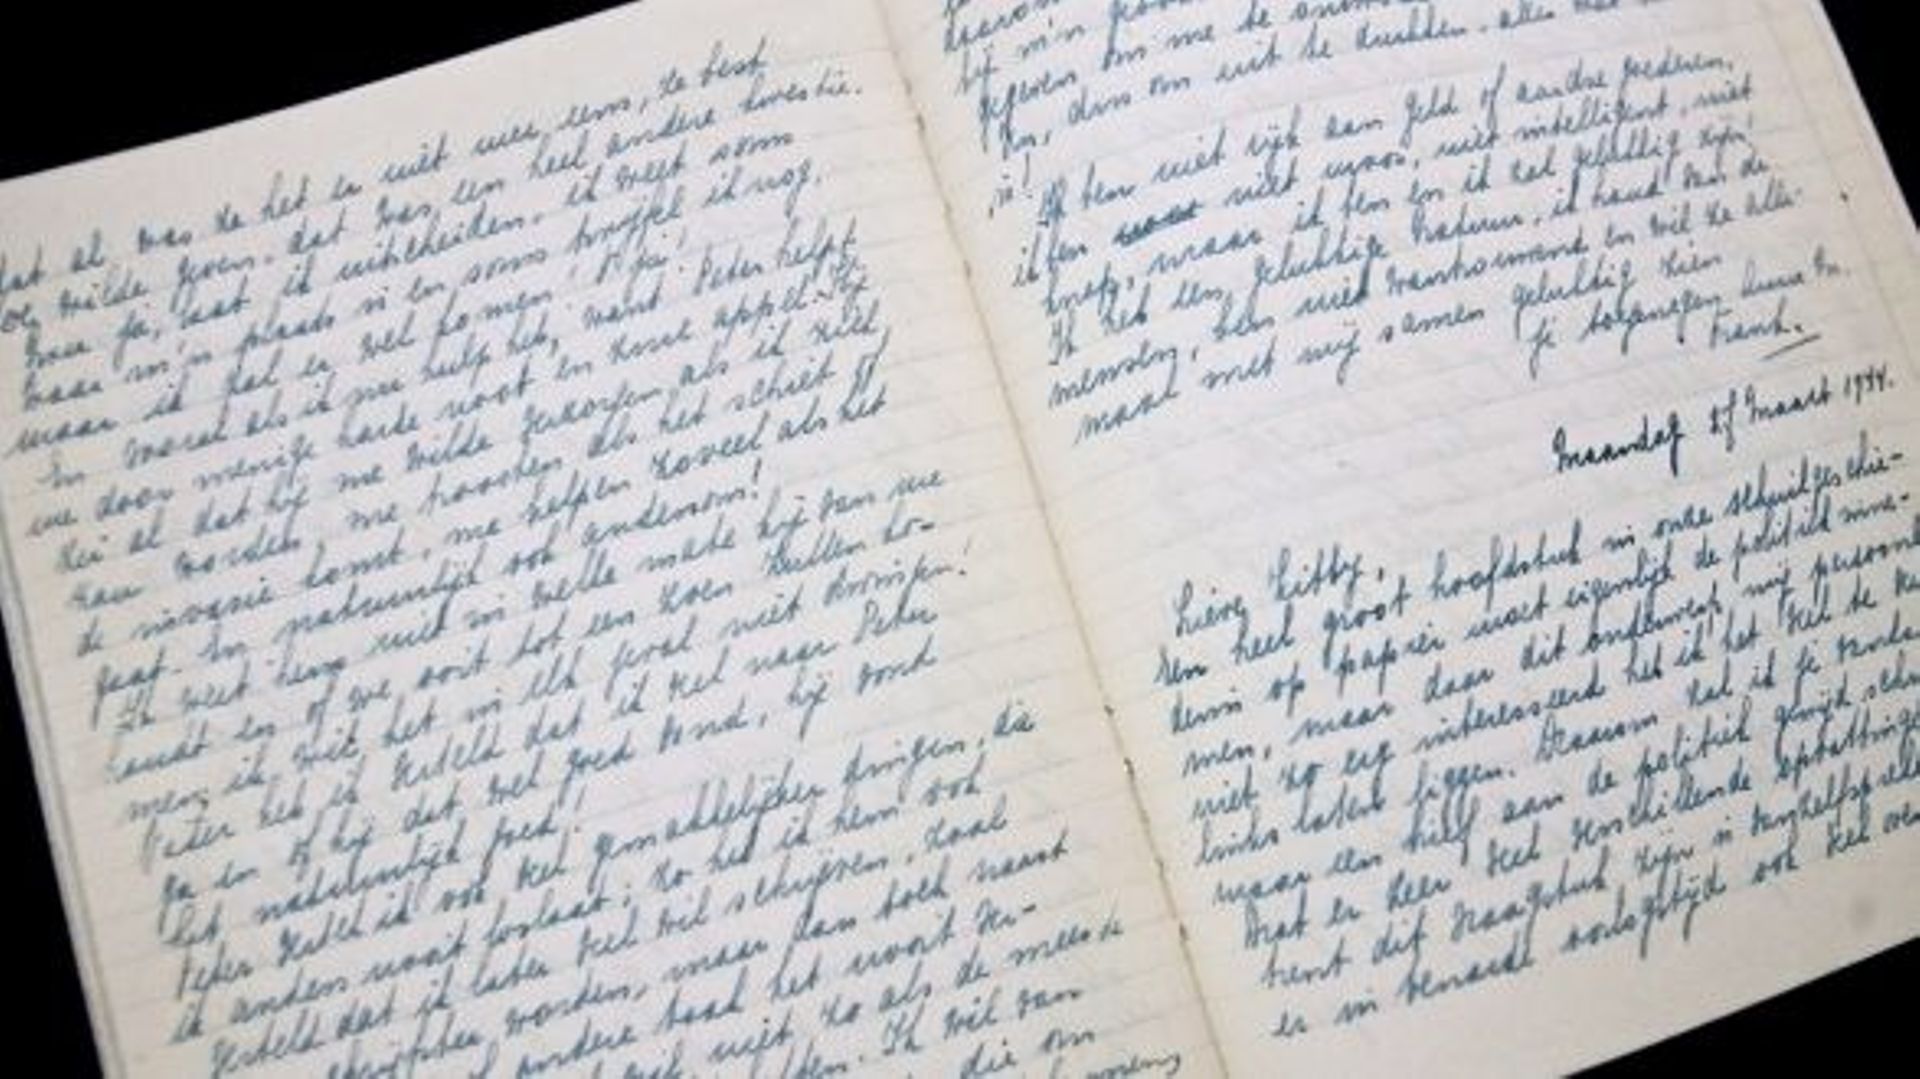 dat al was ze het er niet mee eens, ze best
wilde geven. dat was een heel andere kwestie.
Maar ja, laat ik uitscheiden. ik weet soms
m'n plaats is en soms twijfel ik nog,
maar ik zal er wel komen! O ja!
En vooral als ik nu hulp heb, want Peter helpt
me door menige harde noot en zure appel. Hij
zei al dat hij me wilde als ik ziek
zou worden, me troosten als het schiet of
de invasie komt, me helpen zoveel als het
gaat. En natuurlijk ook andersom!
Ik weet heus niet in welke mate hij van me
houdt en of we ooit tot een zoen zullen ko-
men, ik wil het in elk geval niet dwingen!
heb ik verteld dat ik veel naar Peter
ga en of hij dat wel goed vond, hij vond
het natuurlijk goed!
Peter vertel ik ook veel gemakkelijker dingen, die
ik anders nooit loslaat; zo heb ik hem ook
verteld dat ik later veel wil schrijven. zoal
worden, maar dan toch naast
andere taak het nooit ver-
niet zo als de meeste
Ik wil van
die om
daarom
zij m'n
gegeven om me te
om, dus om uit te drukken. alles wat
in!
Ik ben niet rijk aan geld of aardse goederen,
ik ben niet mooi, niet intelligent, niet
knap, maar ik ben en ik zal gelukkig zijn!
Ik heb een gelukkige natuur, ik houd van de
mensen, ben niet wantrouwend en wil ze alle-
maal met mij samen gelukkig zien
je toegenegen Anne M.
Frank.
Maandag 27 Maart 1944.
Lieve Kitty,
Een heel groot hoofdstuk in onze schuilgeschie-
denis op papier moet eigenlijk de politiek inne-
men, maar daar dit onderwerp mij persoonl
niet zo erg interesseerd heb ik het veel te
links laten liggen. Daarom zal ik je vanda
maar een hele brief aan de politiek gewijd schr
Dat er zeer veel verschillende opvattinge
omtrent dit vraagstuk zijn is vanzelfspreke
er in benarde oorlogstijde ook veel over